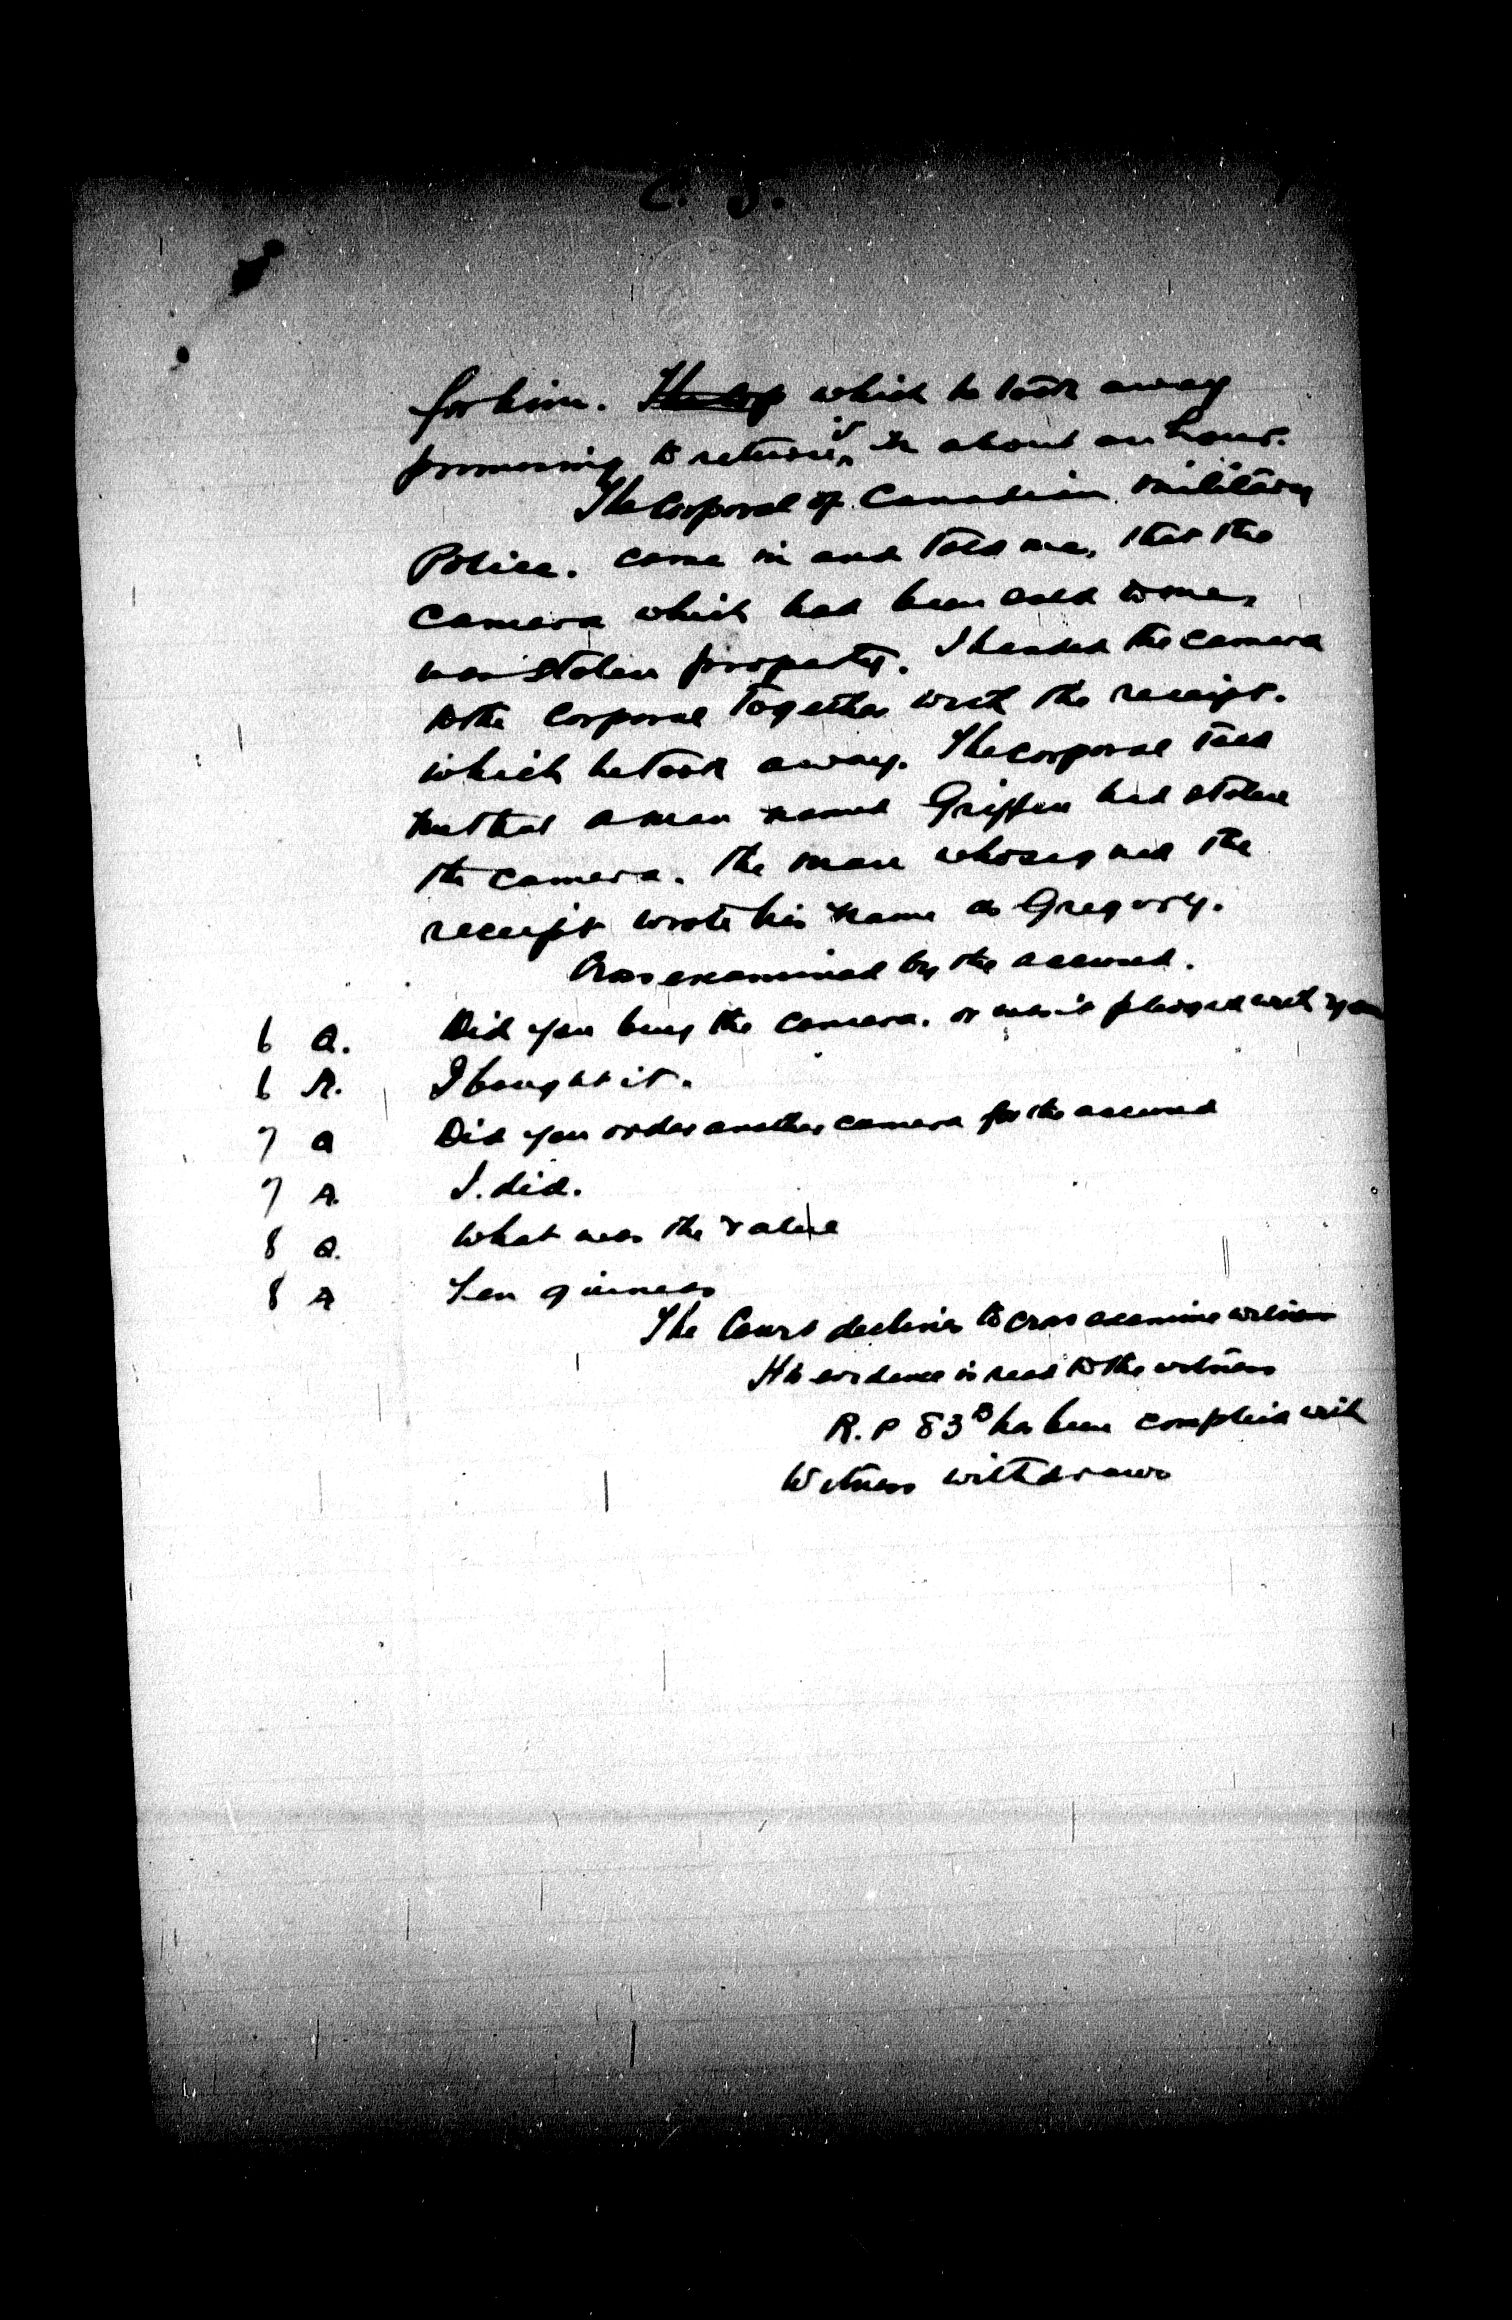 C. S.
for him. The Corp which he took away
promising to return it in about an hour.
The Corporal of Canadian Military
Police. came in and told me, that the
camera which had been sold to me,
was stolen property. I handed the camera
to the Corporal together with the receipt.
which he took away. The corporal told
me that a man named Griffen had stolen
the camera. the man who signed the
receipt wrote his name as Gregory.
Cross examined by the accused.
6 Q. Did you buy the camera. or was it pledged with you
6 A. I bought it.
7 Q Did you order another camera for the accused
7 A. I. did.
8 Q. What was the value
8 A Ten guineas
The Court declines to cross examine witness
His evidence is read to the witness
R. P 83 B has been complied with
Witness withdraws